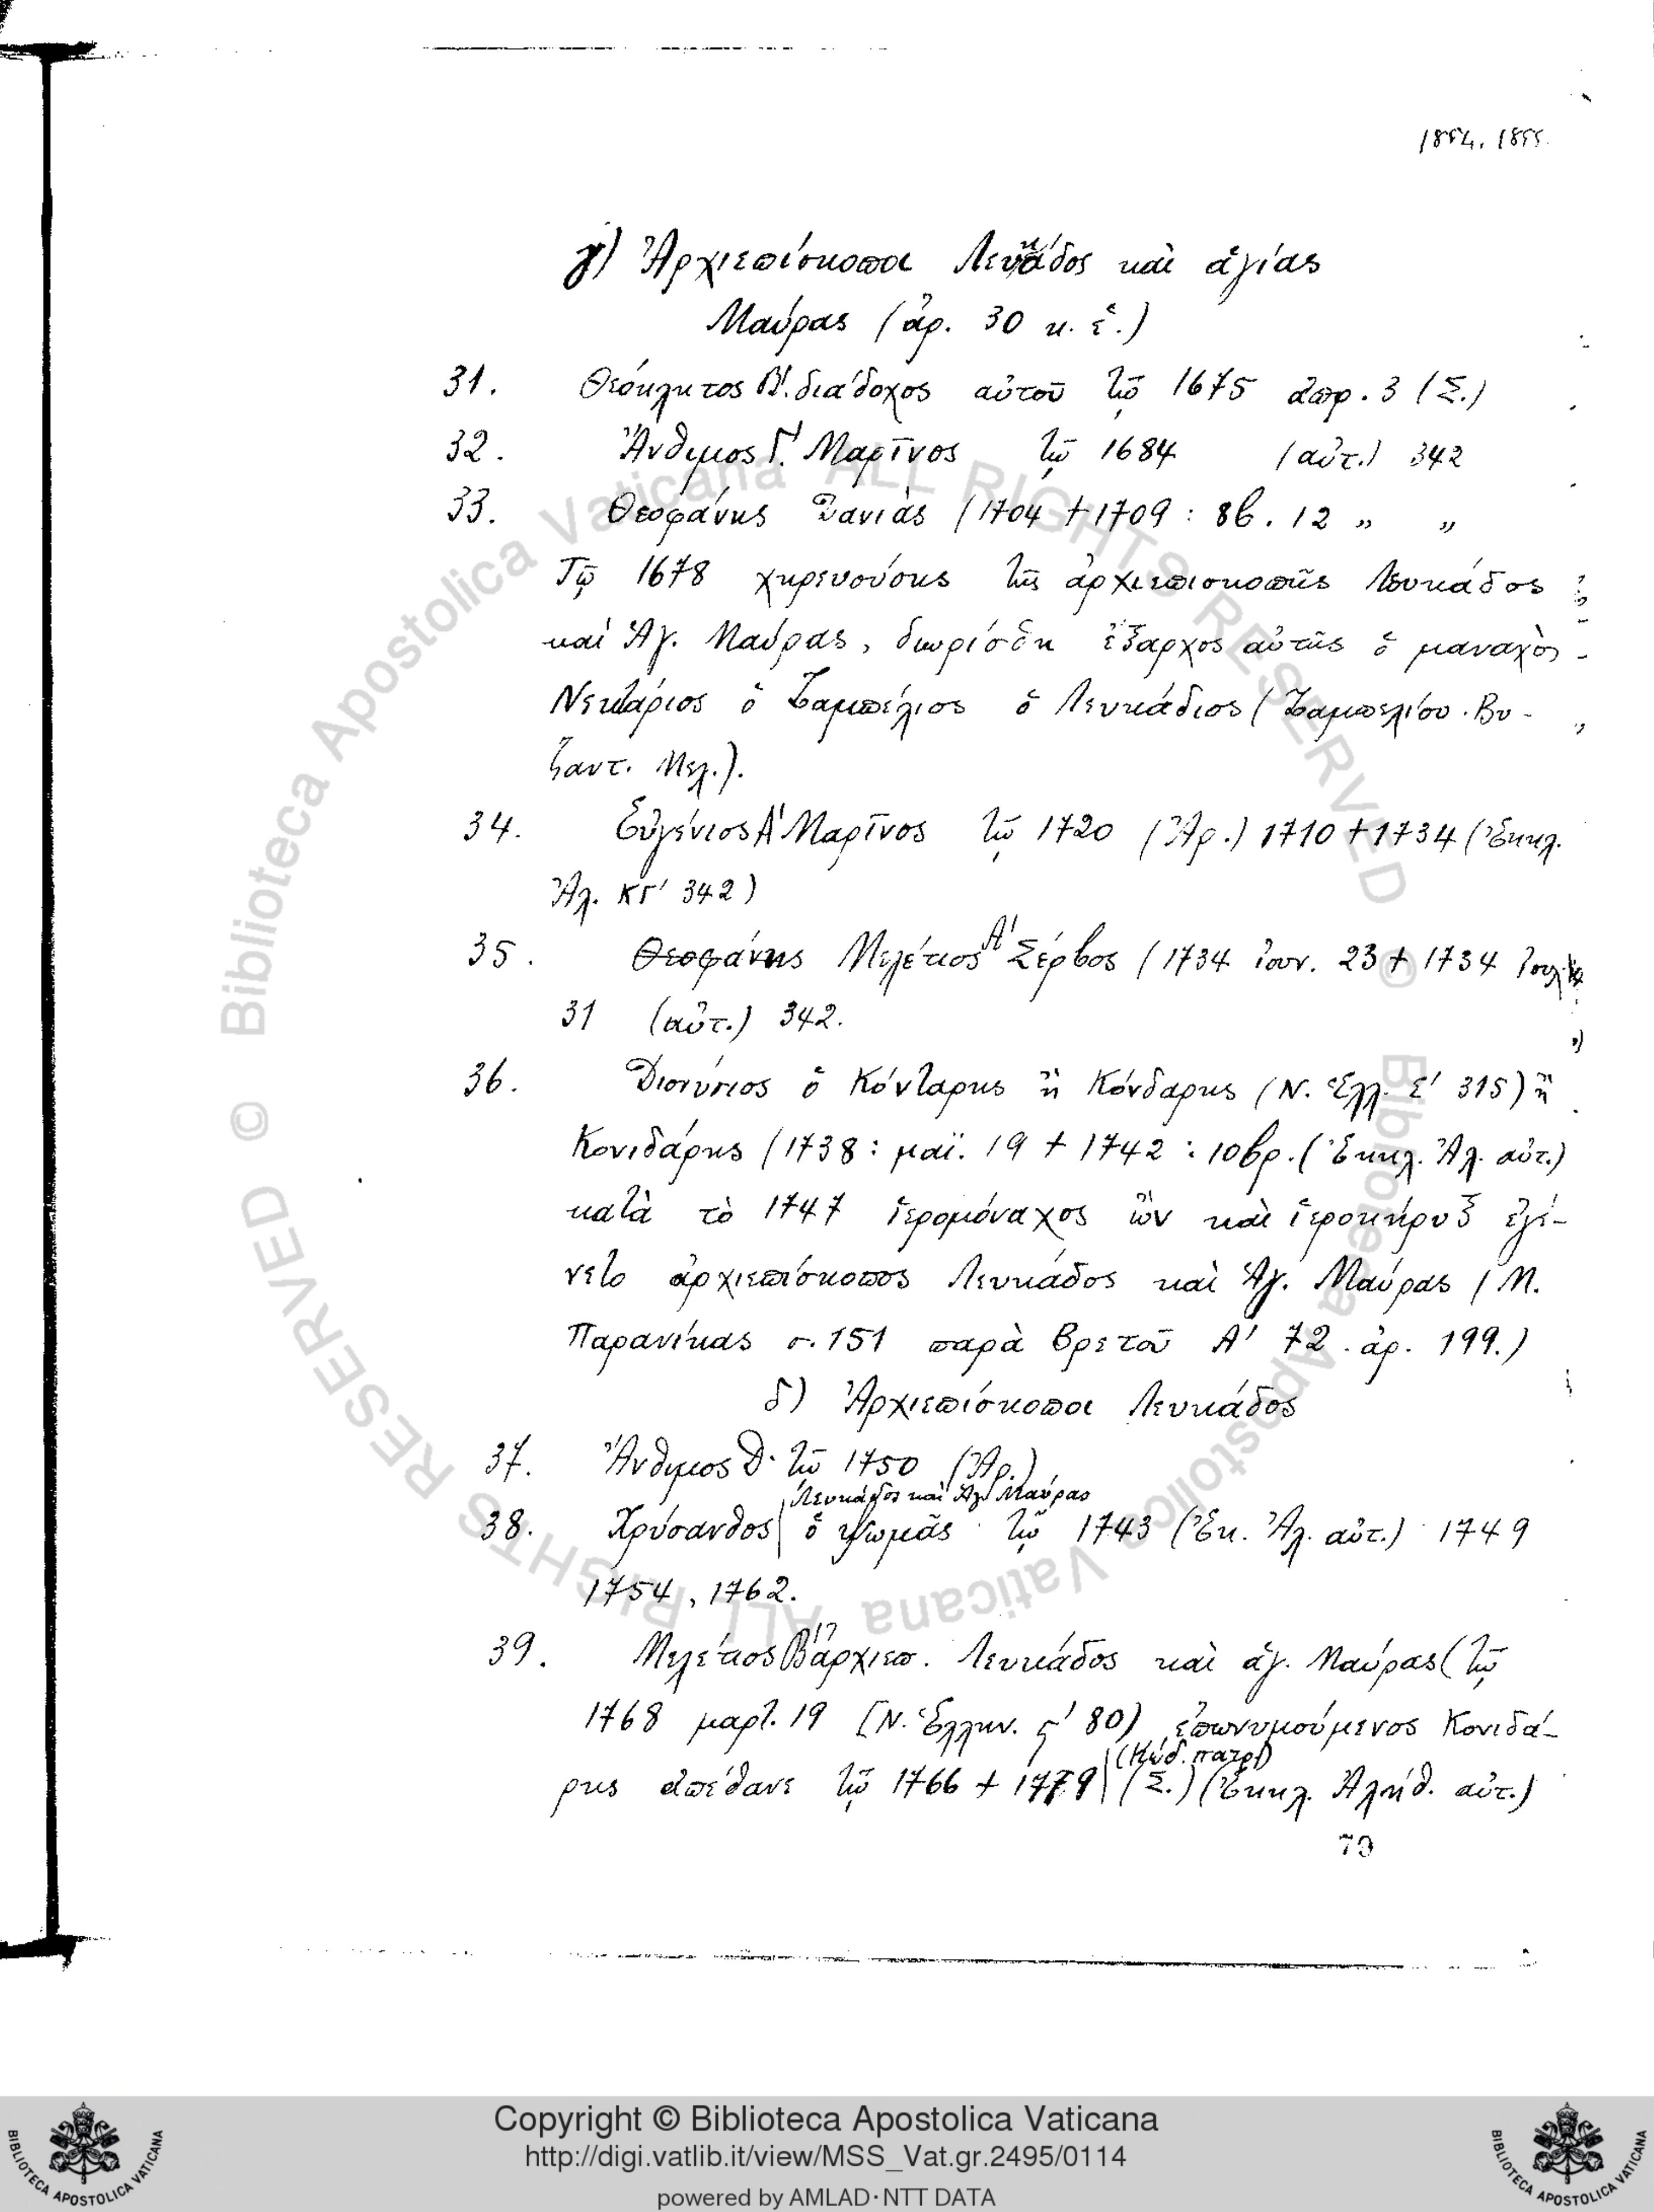 1854. 1855.
γ) Ἀρχιεπίσκοποι Λευκάδος καὶ ἁγίας
Μαύρας (ἀρ. 30 κ. ἑ.)
31. Θεόκλητος Β΄. διάδοχος αὐτοῦ τῷ 1675 ἀπρ. 3 (Σ.)
32. Ἄνθιμος Γ΄. Μαρῖνος τῷ 1684 (αὐτ.) 342
33. Θεοφάνης (1704 + 1709 : 8β. 12 〃 〃
Τῷ 1678 χηρευούσης τῆς ἀρχιεπισκοπῆς Λευκάδος
καὶ Ἁγ. Μαύρας, διωρίσθη ἔξαρχος αὐτῆς ὁ μοναχὸς
Νεκτάριος ὁ Ζαμπέλιος ὁ Λευκάδιος (Ζαμπελίου. Βυ-
ζαντ. Μελ.).
34. Εὐγένιος Α΄ Μαρῖνος τῷ 1720 (Ἀρ.) 1710 + 1734 (Ἐκκλ.
Ἀλ. ΚΓ΄ 342)
35. Θεοφάνης Μελέτιος Α΄ Σέρβος (1734 ἰουν. 23 + 1734 Ἰουλ.
31 (αὐτ.) 342.
36. Διονύσιος ὁ Κόνταρης ἢ Κόνδαρης (Ν. Ἑλλ. Σ΄ 315) ἢ
Κονιδάρης (1738 : μαΐ. 19 + 1742 : 10βρ. (Ἐκκλ. Ἀλ. αὐτ.)
κατὰ τὸ 1747 ἱερομόναχος ὢν καὶ ἱεροκήρυξ ἐγέ-
νετο ἀρχιεπίσκοπος Λευκάδος καὶ Ἁγ. Μαύρας (Μ.
Παρανίκας σ. 151 παρὰ Βρετοῦ Α΄ 72. ἀρ. 199.)
δ) Ἀρχιεπίσκοποι Λευκάδος
37. Ἄνθιμος Δ. τῷ 1750 (Ἀρ.)
Λευκάδος καὶ Ἁγ. Μαύρας
38. Χρύσανθος ὁ Ψωμᾶς τῷ 1743 (Ἐκ. Ἀλ. αὐτ.) 1749
1754, 1762.
39. Μελέτιος Β΄ ἀρχιεπ. Λευκάδος καὶ ἁγ. Μαύρας (τῷ
1768 μαρτ. 19 [Ν. Ἑλλην. ϛ΄ 80), ἐπωνυμούμενος Κονιδά-
(Κώδ. πατρ)
ρης ἀπέθανε τῷ 1766 + 1779 (Σ.) (Ἐκκλ. Ἀλήθ. αὐτ.)
79
Copyright © Biblioteca Apostolica Vaticana
http://digi.vatlib.it/view/MSS_Vat.gr.2495/0114
powered by AMLAD·NTT DATA
BIBLIOTECA APOSTOLICA VATICANA
BIBLIOTECA APOSTOLICA VATICANA
© Biblioteca Apostolica Vaticana ALL RIGHTS RESERVED © Biblioteca Apostolica Vaticana ALL RIGHTS RESERVED